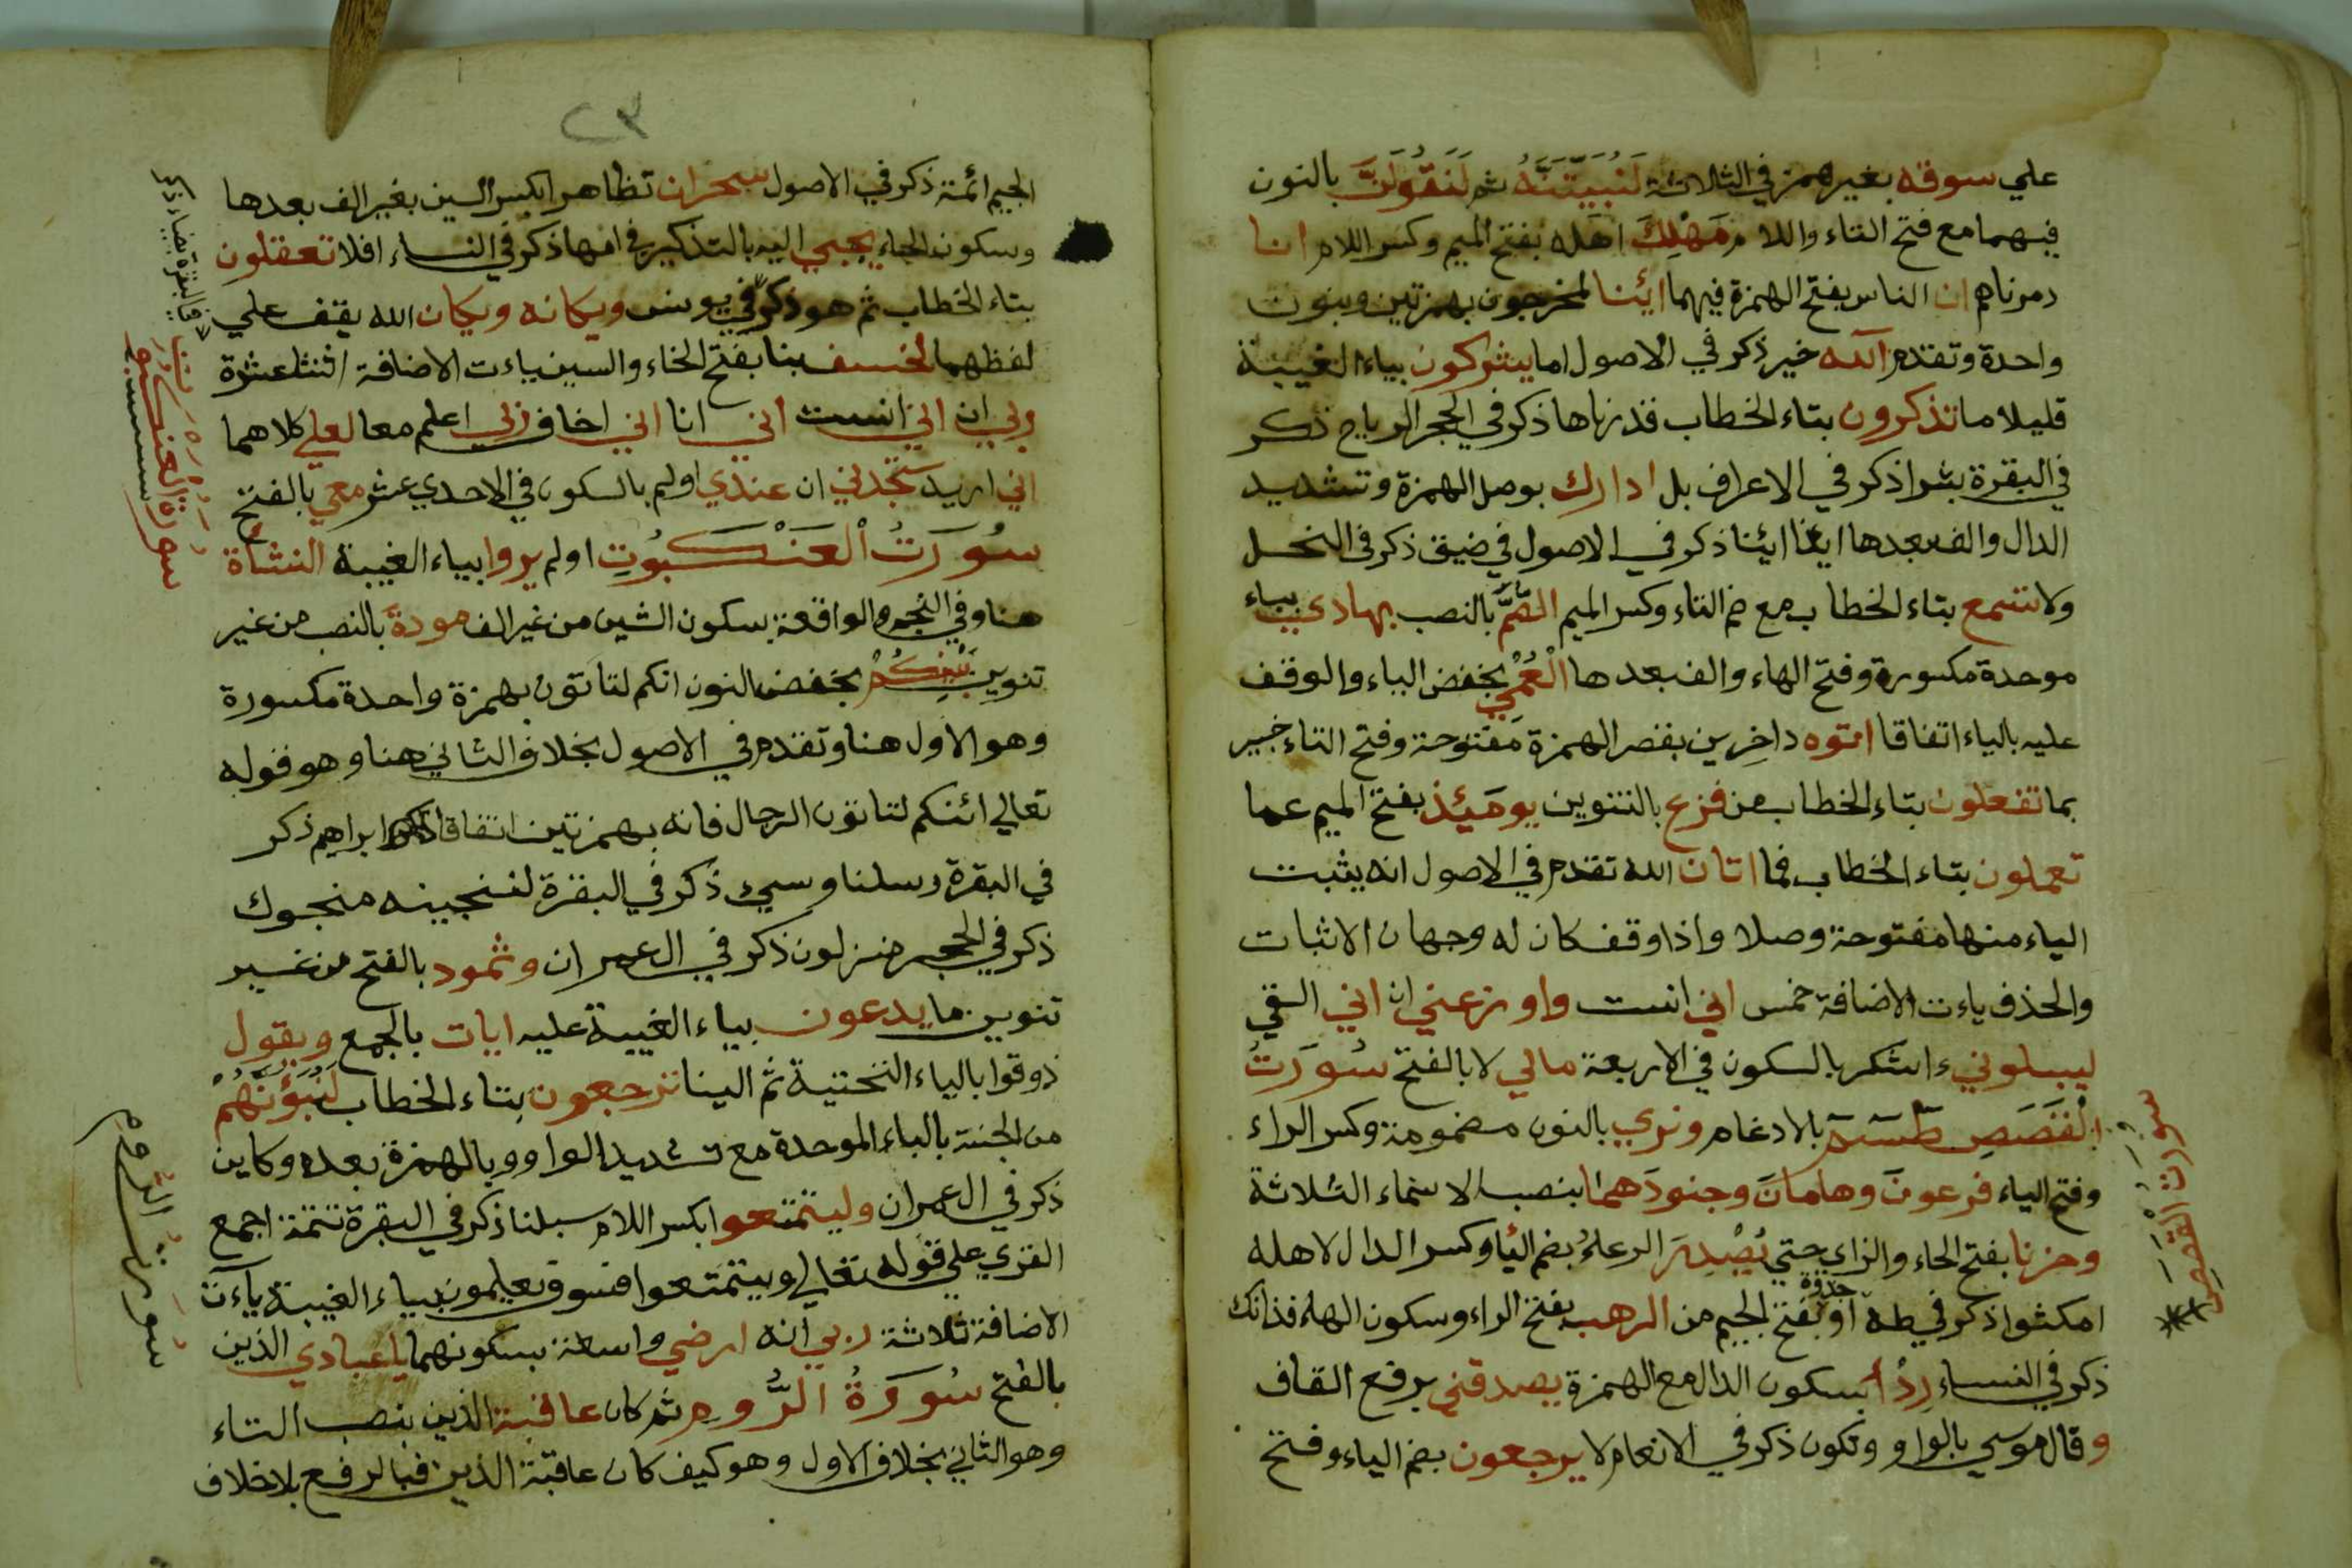 علي سوقه بغير همز في الثلاثة لَنُبَيِّتَنَّهُ ثم لَنَقُولَنَّ بالنون
فيهما مع فتح التاء واللام مَهْلِكَ اهله بفتح الميم وكسر اللام انا
دمرناهم ان الناس بفتح الهمزة فيهما ائنا لمخرجون بهمزتين وبنون
واحدة وتقدم آلله خير ذكر في الاصول اما يشركون بياء الغيبة
قليلا ما تذكرون بتاء الخطاب قدرناها ذكر في الحجر الرياح ذكر
في البقرة بشرا ذكر في الاعراف بل ادارك بوصل الهمزة وتشديد
الدال والف بعدها ايذا ائنا ذكر في الاصول في ضيق ذكر في النحل
ولا تسمع بتاء الخطاب مع ضم التاء وكسر الميم الصُّمَّ بالنصب بهادي بباء
موحدة مكسورة وفتح الهاء والف بعدها الْعُمْيِ بخفض الياء والوقف
عليه بالياء اتفاقا اتوه داخِرين بقصر الهمزة مفتوحة وفتح التاء خبير
بما تفعلون بتاء الخطاب من فزع بالتنوين يومَئِذ بفتح الميم عما
تعملون بتاء الخطاب فما اتان الله تقدم في الاصول انه يثبت
الياء منها مفتوحة وصلا واذا وقف كان له وجهان الاثبات
والحذف ياءت الاضافة خمس اني انست واوزعني ان اني القي
ليبلوني ءاشكر بالسكون في الاربعة مالي لا بالفتح سُورَتُ
الْقَصَصِ طسم بالادغام ونري بالنون مضمومة وكسر الراء
وفتح الياء فرعونَ وهامانَ وجنودَهما بنصب الاسماء الثلاثة
وحزنا بفتح الحاء والزاي حتي يُصْدِرَ الرعاءُ بضم اليا وكسر الدال لاهله
امكثوا ذكر في طه او جذوة بفتح الجيم من الرهب بفتح الراء وسكون الهاء فذانك
ذكر في النساء رِدْأً بسكون الدال مع الهمزة يصدقني برفع القاف
وقال موسي بالواو وتكون ذكر في الانعام لا يرجعون بضم الياء وفتح
سورت القصص
٢٣
الجيم ائمة ذكر في الاصول سحران تظاهرا بكسر السين بغير الف بعدها
وسكون الحاء يجبي اليه بالتذكير في امها ذكر في النساء افلا تعقلون
بتاء الخطاب ثم هو ذكر في يونس ويكانه ويكان الله يقف علي
لفظهما لخسف بنا بفتح الخاء والسين ياءت الاضافة اثنتا عشرة
ربي ان اني انست اني انا اني اخاف ربي اعلم معا لعلي كلاهما
اني اريد ستجدني ان عندي اولم بالسكون في الاحدي عشر معي بالفتح
سُورَتُ الْعَنْكَبُوتِ اولم يروا بياء الغيبة النشأة
هنا وفي النجم والواقعة بسكون الشين من غير الف مودةَ بالنصب من غير
تنوين بَيْنِكُمْ بخفض النون انكم لتاتون بهمزة واحدة مكسورة
وهو الاول هنا وتقدم في الاصول بخلاف الثاني هنا وهو قوله
تعالي ائنكم لتاتون الرجال فانه بهمزتين اتفاقا ابراهيم ذكر
في البقرة رسلنا وسيء ذكر في البقرة لننجينه منجوك
ذكر في الحجر منزلون ذكر في ال عمران وثمود بالفتح من غير
تنوين ما يدعون بياء الغيبة عليه ايات بالجمع ويقول
ذوقوا بالياء التحتية ثم الينا ترجعون بتاء الخطاب لَنُبَوِّئَنَّهُمْ
من الجنة بالباء الموحدة مع تشديد الواو وبالهمزة بعده وكاين
ذكر في ال عمران وليتمتعوا بكسر اللام سبلنا ذكر في البقرة تتمة اجمع
القري علي قوله تعالي وليتمتعوا فسوف يعلمون بياء الغيبة ياءَت
الاضافة ثلاثة ربي انه ارضي واسعة بسكونهما ياعبادي الذين
بالفتح سُورَةُ الرُّومِ ثم كان عاقبة الذين بنصب التاء
وهو الثاني بخلاف الاول وهو كيف كان عاقبة الذين فبالرفع بلا خلاف
سورة العنكبوت
سورة الروم